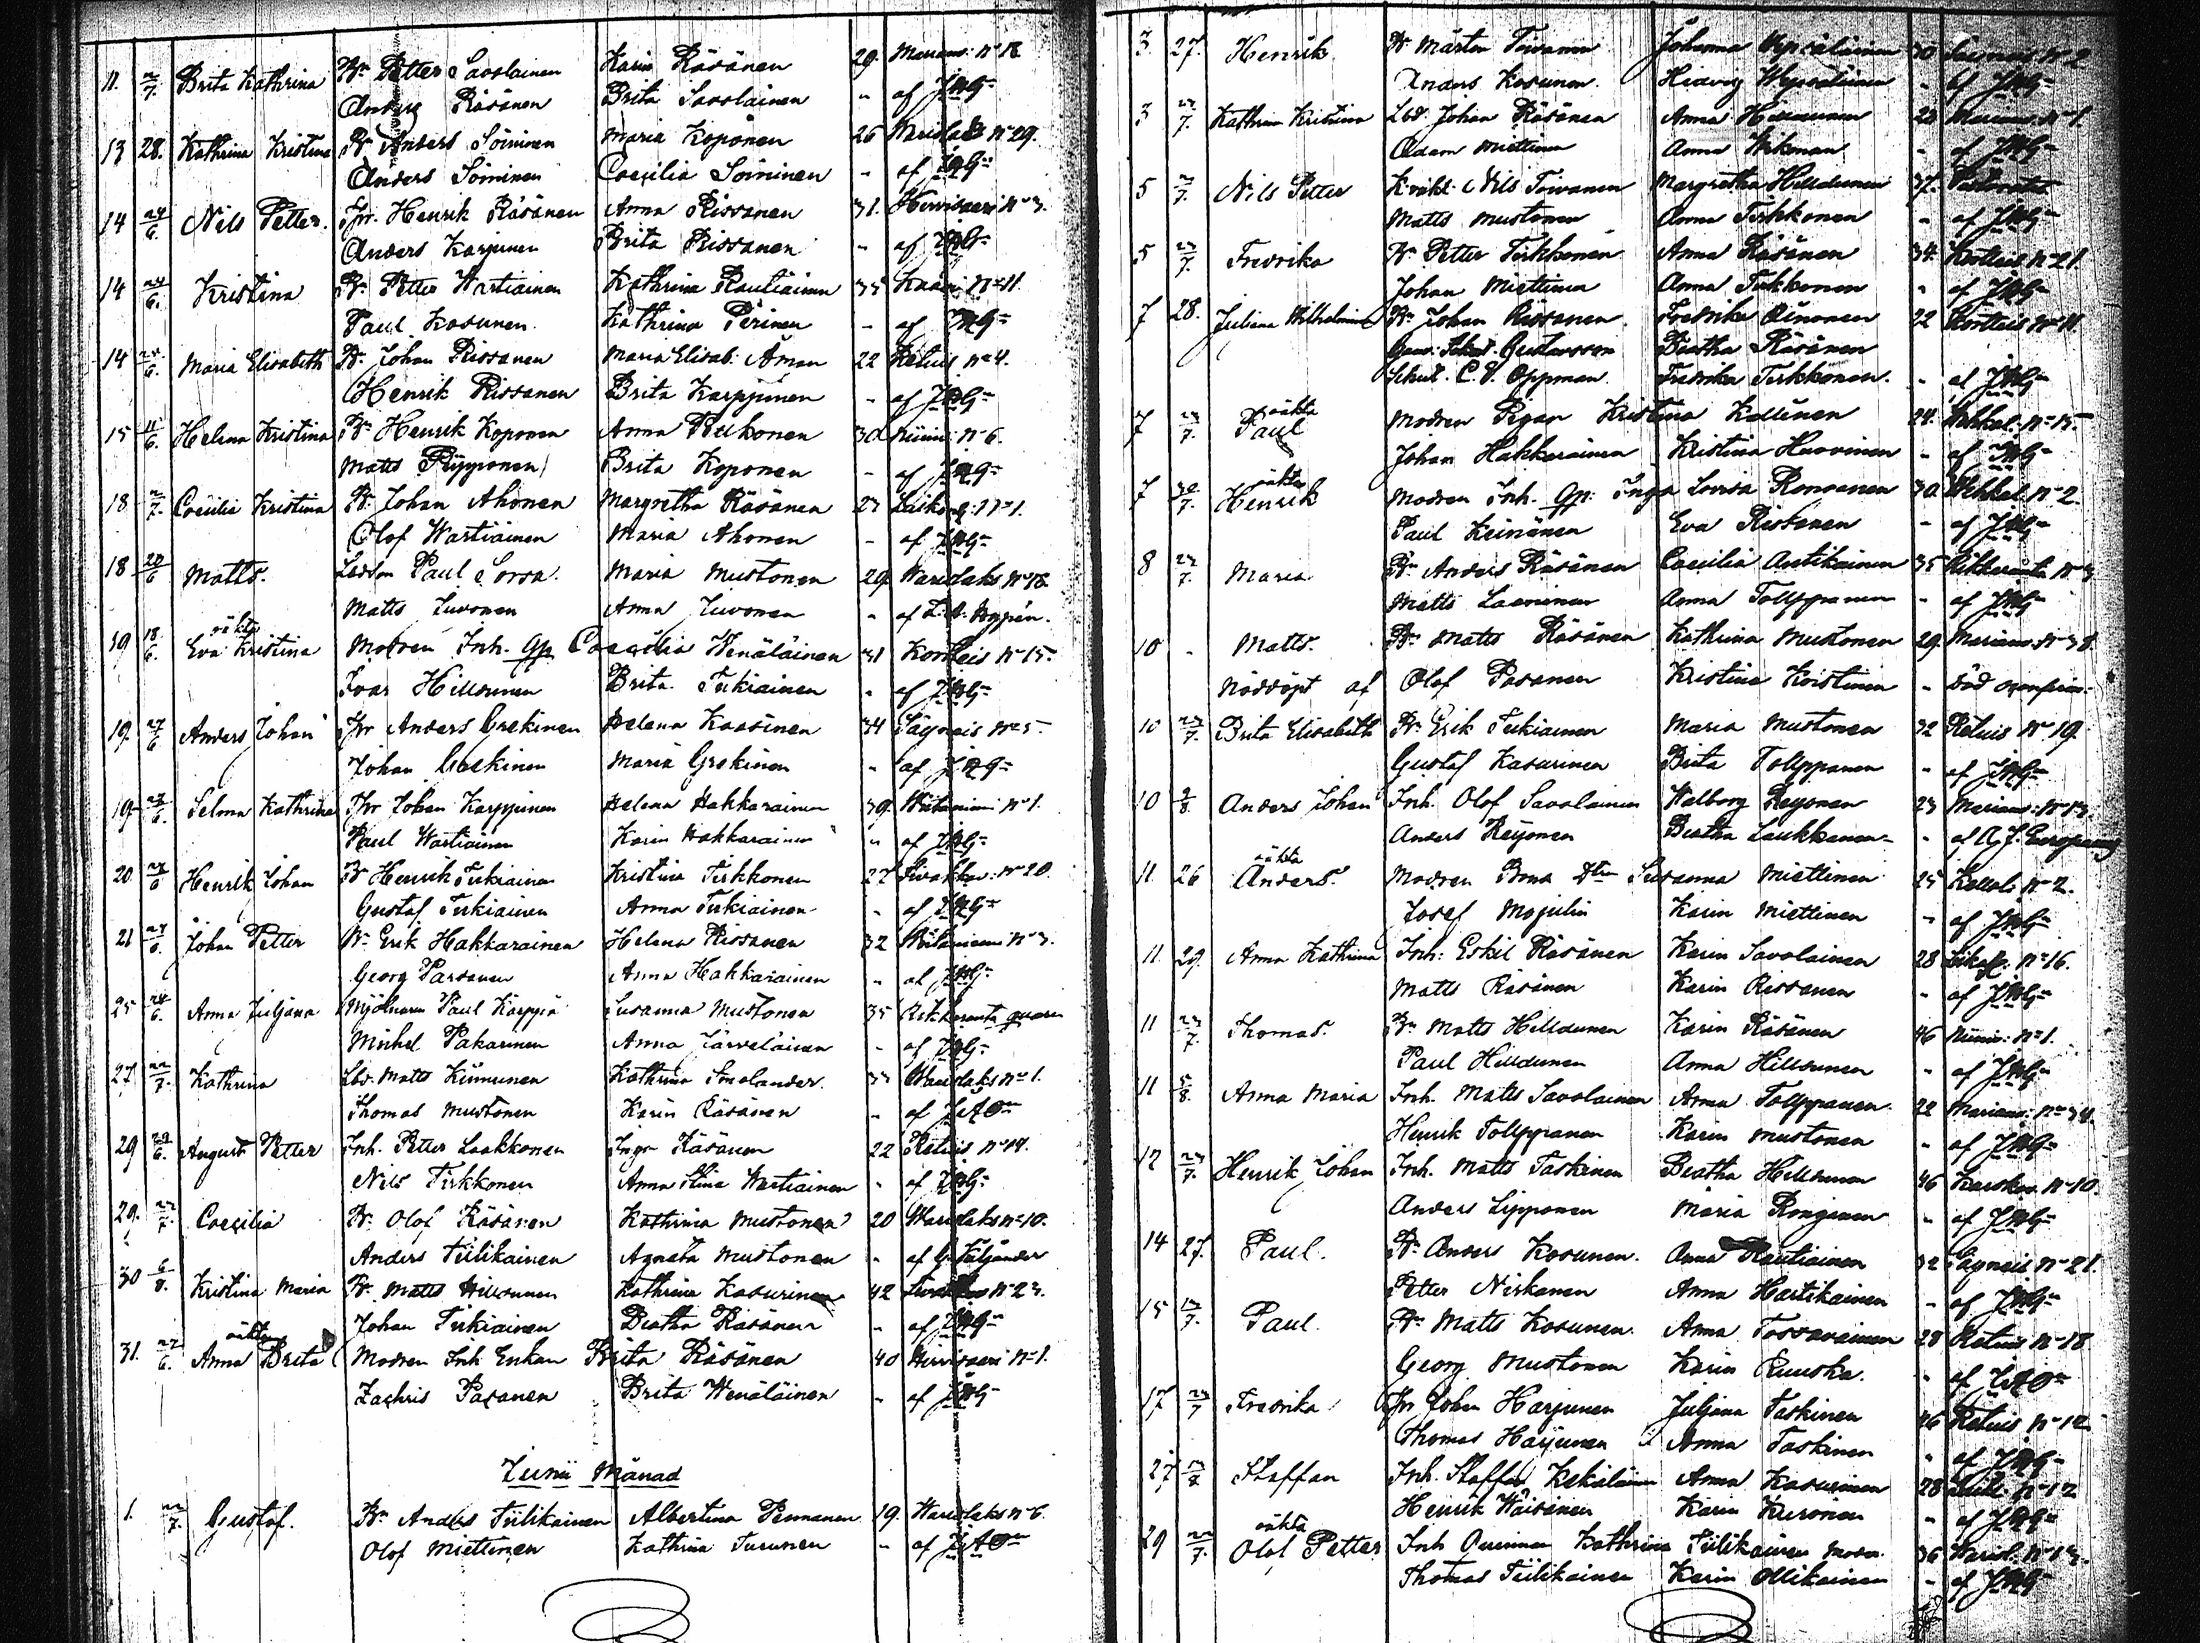 11. 2/7. Brita Kathrina Bn Petter Savolainen Karin Räsänen 29. Marians: No 18
Anders Räsänen Brita Savolainen " af JMG
13 28. Kathrina Kristina Bn Anders Soininen Maria Koponen 26 Warislaks No 29.
Anders Soininen Caecilia Soininen - af JMG
14 24/6. Nils Petter. Thr Henrik Räsänen Anna Rissanen 31. Hirvisaari No 3.
Anders Karjunen Brita Rissanen - af JMG
14 24/6. Kristina Bn Petter Wartiainen Kathrina Rautiainen 35 No 11.
Paul Kosunen. Kathrina Pirinen - af JMG
14 24/6. Maria Elisabeth Bn Johan Rissanen Maria Elisab: Åman 22 Retuis No 4.
Henrik Rissanen Brita Karppinen - af JMG
15 11/6. Helena Kristina Bn Henrik Koponen Anna Pulkonen 30 Niinis No 6.
Matts Ripponen Brita Koponen - af JMG
18 2/7. Caecilia Kristina Bn Johan Ahonen Margretha Räsänen 27 No 1.
Olof Wartiainen Maria Ahonen - af JMG
18 20/6 Matts. Lösdr Paul Sorsa. Maria Mustonen 29. Warislaks No 18.
Matts Juvonen Anna Juvonen " af
19 18/6. oäkta Eva Kristina Modren Inh. Gp Caecilia Wenäläinen 31 Kortteis No 15.
Ivar Hillounen Brita Tukiainen " af JMG
19. 27/6 Anders Johan Thr Anders Grekinen Helena Kaasinen 34 Sägnais No 5.
Johan Grekinen Maria Grekinen " af JMG
19. 27/6. Selma Kathrina Thr Johan Karppinen Helena Hakkarainen 39. No 1.
Paul Wartiainen Karin Hakkarainen " af JMG
20 27/6 Henrik Johan Bn Henrik Tukiainen Kristina Tirkkonen 27 No 20.
Gustaf Tukiainen Anna Tukiainen - af JMG
21 27/6. Johan Petter Bn Erik Hakkarainen Helena Rissanen 32 No 3.
Georg Parsanen Anna Hakkarainen " af JMG
25 24/6. Anna Juljana Mjölnaren Paul Karppi Susanna Mustonen 35 Rekkeranta qvarn
Michel Pakarinen Anna Järveläinen - af JMG
27. 22/7. Kathrina Lbd. Matts Kinnunen Kathrina Smolander. Warislaks No 1.
Thomas Mustonen Karin Räsänen - af
29 29/6. August Petter Inh. Petter Laakkonen Inga Räsänen 22 Retuis No 14.
Nils Tirkkonen Anna Stina Wartiainen " af JMG
29. 22/7. Caecilia Bn Olof Räsänen Kathrina Mustonen 20 Warislaks No 10.
Anders Tiilikainen Agneta Mustonen " af G. Siljander
30 6/8. Kristina Maria Bn Matts Hillounen Kathrina Kasurinen 42 No 23.
Johan Tukiainen Beatha Räsänen - af JMG
31. 27/6. oäkta Anna Brita Modren Inh Enkan Brita Räsänen 40 Hirvisaari No 1.
Zachris Pasanen Brita Wenäläinen " af JMG
Junii Månad
1. 22/7. Gustaf. Bn Anders Tiilikainen Albertina Pennanen 19. Warislaks No 6.
Olof Miettinen Kathrina Turunen " af
3. 27. Henrik Bn Mårten Toivanen Johanna 30 No 2
Anders Kosunen. Hedvig - af JMG
3 27/7. Kathrina Kristina Lbd. Johan Räsänen Anna Hiltunen 23 Marians: No 1.
Adam Miettinen Anna Wirkman - af JMG
5 2/7. Nils Petter Nils Toivanen Margretha Hillounen 37.
Matts Mustonen Anna Tirkkonen " af JMG
5 27/7. Fredrika Bn Petter Tirkkonen Anna Räsänen 34. Kortteis No 21.
Johan Miettinen Anna Tirkkonen " af JMG
7 28. Juliana Wilhelmina Bn Johan Rissanen Fredrika Äinonen 22 Kortteis No 11.
Gustavsson Beatha Räsänen
C. V. Oppman. Fredrika Tirkkonen. " af JMG
7 27/7. oäkta Paul Modren Pigan Kristina Kettunen 24. Wehkal: No 15.
Johan Hakkarainen Kristina Hurvinen " af JMG
7 30/7. oäkta Henrik Modren Inh. Gp: Inga Lovisa Ronganen 30 Wehkal: No 2.
Paul Keinänen Eva Rissanen " af JMG
8 27/7. Maria Bn Anders Räsänen Caecilia Antikainen 35 Rekkeranta No 3.
Matts Laaninen Anna Tolppanen - af JMG
10 - Matts. Bn Matts Räsänen Kathrina Mustonen 29. Marians: No 38.
Nöddöpt af Olof Pasanen Kristina Koistinen " död
10 27/7. Brita Elisabeth Bn Erik Tukiainen Maria Mustonen 32 Retuis No 19.
Gustaf Kasurinen Brita Tolppanen " af JMG
10 2/8. Anders Johan Inh. Olof Savolainen Walborg Reijonen 23 Marians: No 13.
Anders Reijonen Beatha Laukkanen - af A. J. Europaeus
11. 26 oäkta Anders. Modren Dtn Susanna Miettinen 25 No 2.
Josef Mojulin Karin Miettinen " af JMG
11. 29. Anna Kathrina Inh: Eskil Räsänen Karin Savolainen 28 No 16.
Matts Räsänen Karin Rissanen " af JMG
11 27/7 Thomas. Bn Matts Hillounen Karin Räsänen 46 Niinis: No 1.
Paul Hillounen Anna Hillounen " af JMG
11 5/8. Anna Maria Inh. Matts Savolainen Anna Tolppanen. 22 Marians: No 34.
Henrik Tolppanen Karin Mustonen " af JMG
12 27/7. Henrik Johan Inh. Matts Taskinen Beatha Hillounen 46 No 10.
Anders Lipponen Maria Ronganen " af JMG
14 27. Paul. Bn Anders Kosunen. Anna Rautiainen 32 Sägnais No 21.
Petter Niskanen Anna Hartikainen " af JMG
15 12/7. Paul. Bn Matts Kosunen. Anna Tossavainen 28 Retuis No 18
Georg Mustonen Karin Ruuska. " af
17 27/7 Fredrika Thr Johan Harjunen Juljana Taskinen 46 Retuis No 12
Thomas Harjunen Anna Taskinen " af JMG
27 Staffan Inh. Staffan Kekäläinen Anna Kasurinen 28 No 12
Henrik Wäisänen Karin Kuronen " af JMG
29 27/7. oäkta Olof Petter Inh Qvinnan Kathrina Tiilikainen moder. 36 Warisl: No 13.
Thomas Tiilikainen Karin Ollikainen " af JMG